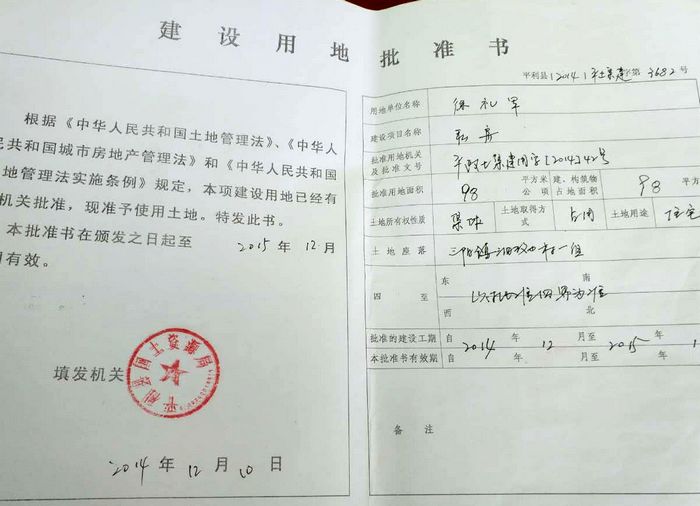 建设用地批准书
根据《中华人民共和国土地管理法》、《中华人
民共和国城市房地产管理法》和《中华人民共和国
地管理法实施条例》规定，本项建设用地已经有
机关批准，现准予使用土地。特发此书。
本批准书在颁发之日起至 2015 年 12 月
有效。
填发机关
平利县国土资源局
2014 年 12 月 10 日
平利县（2014）平土集建字第 3682 号
用地单位名称 徐礼军
建设项目名称
批准用地机关及批准文号 平政土集建用字[2014]42号
批准用地面积 98 平方米 公顷 建、构筑物占地面积 98 平方
土地所有权性质 集体 土地取得方式 占用 土地用途 住宅
土地座落 三阳镇 村一组
四至 东 南 西 北
以批准四界为准
批准的建设工期 自 2014 年 12 月至 2015 年 1
本批准书有效期 自 年 月至 年
备注